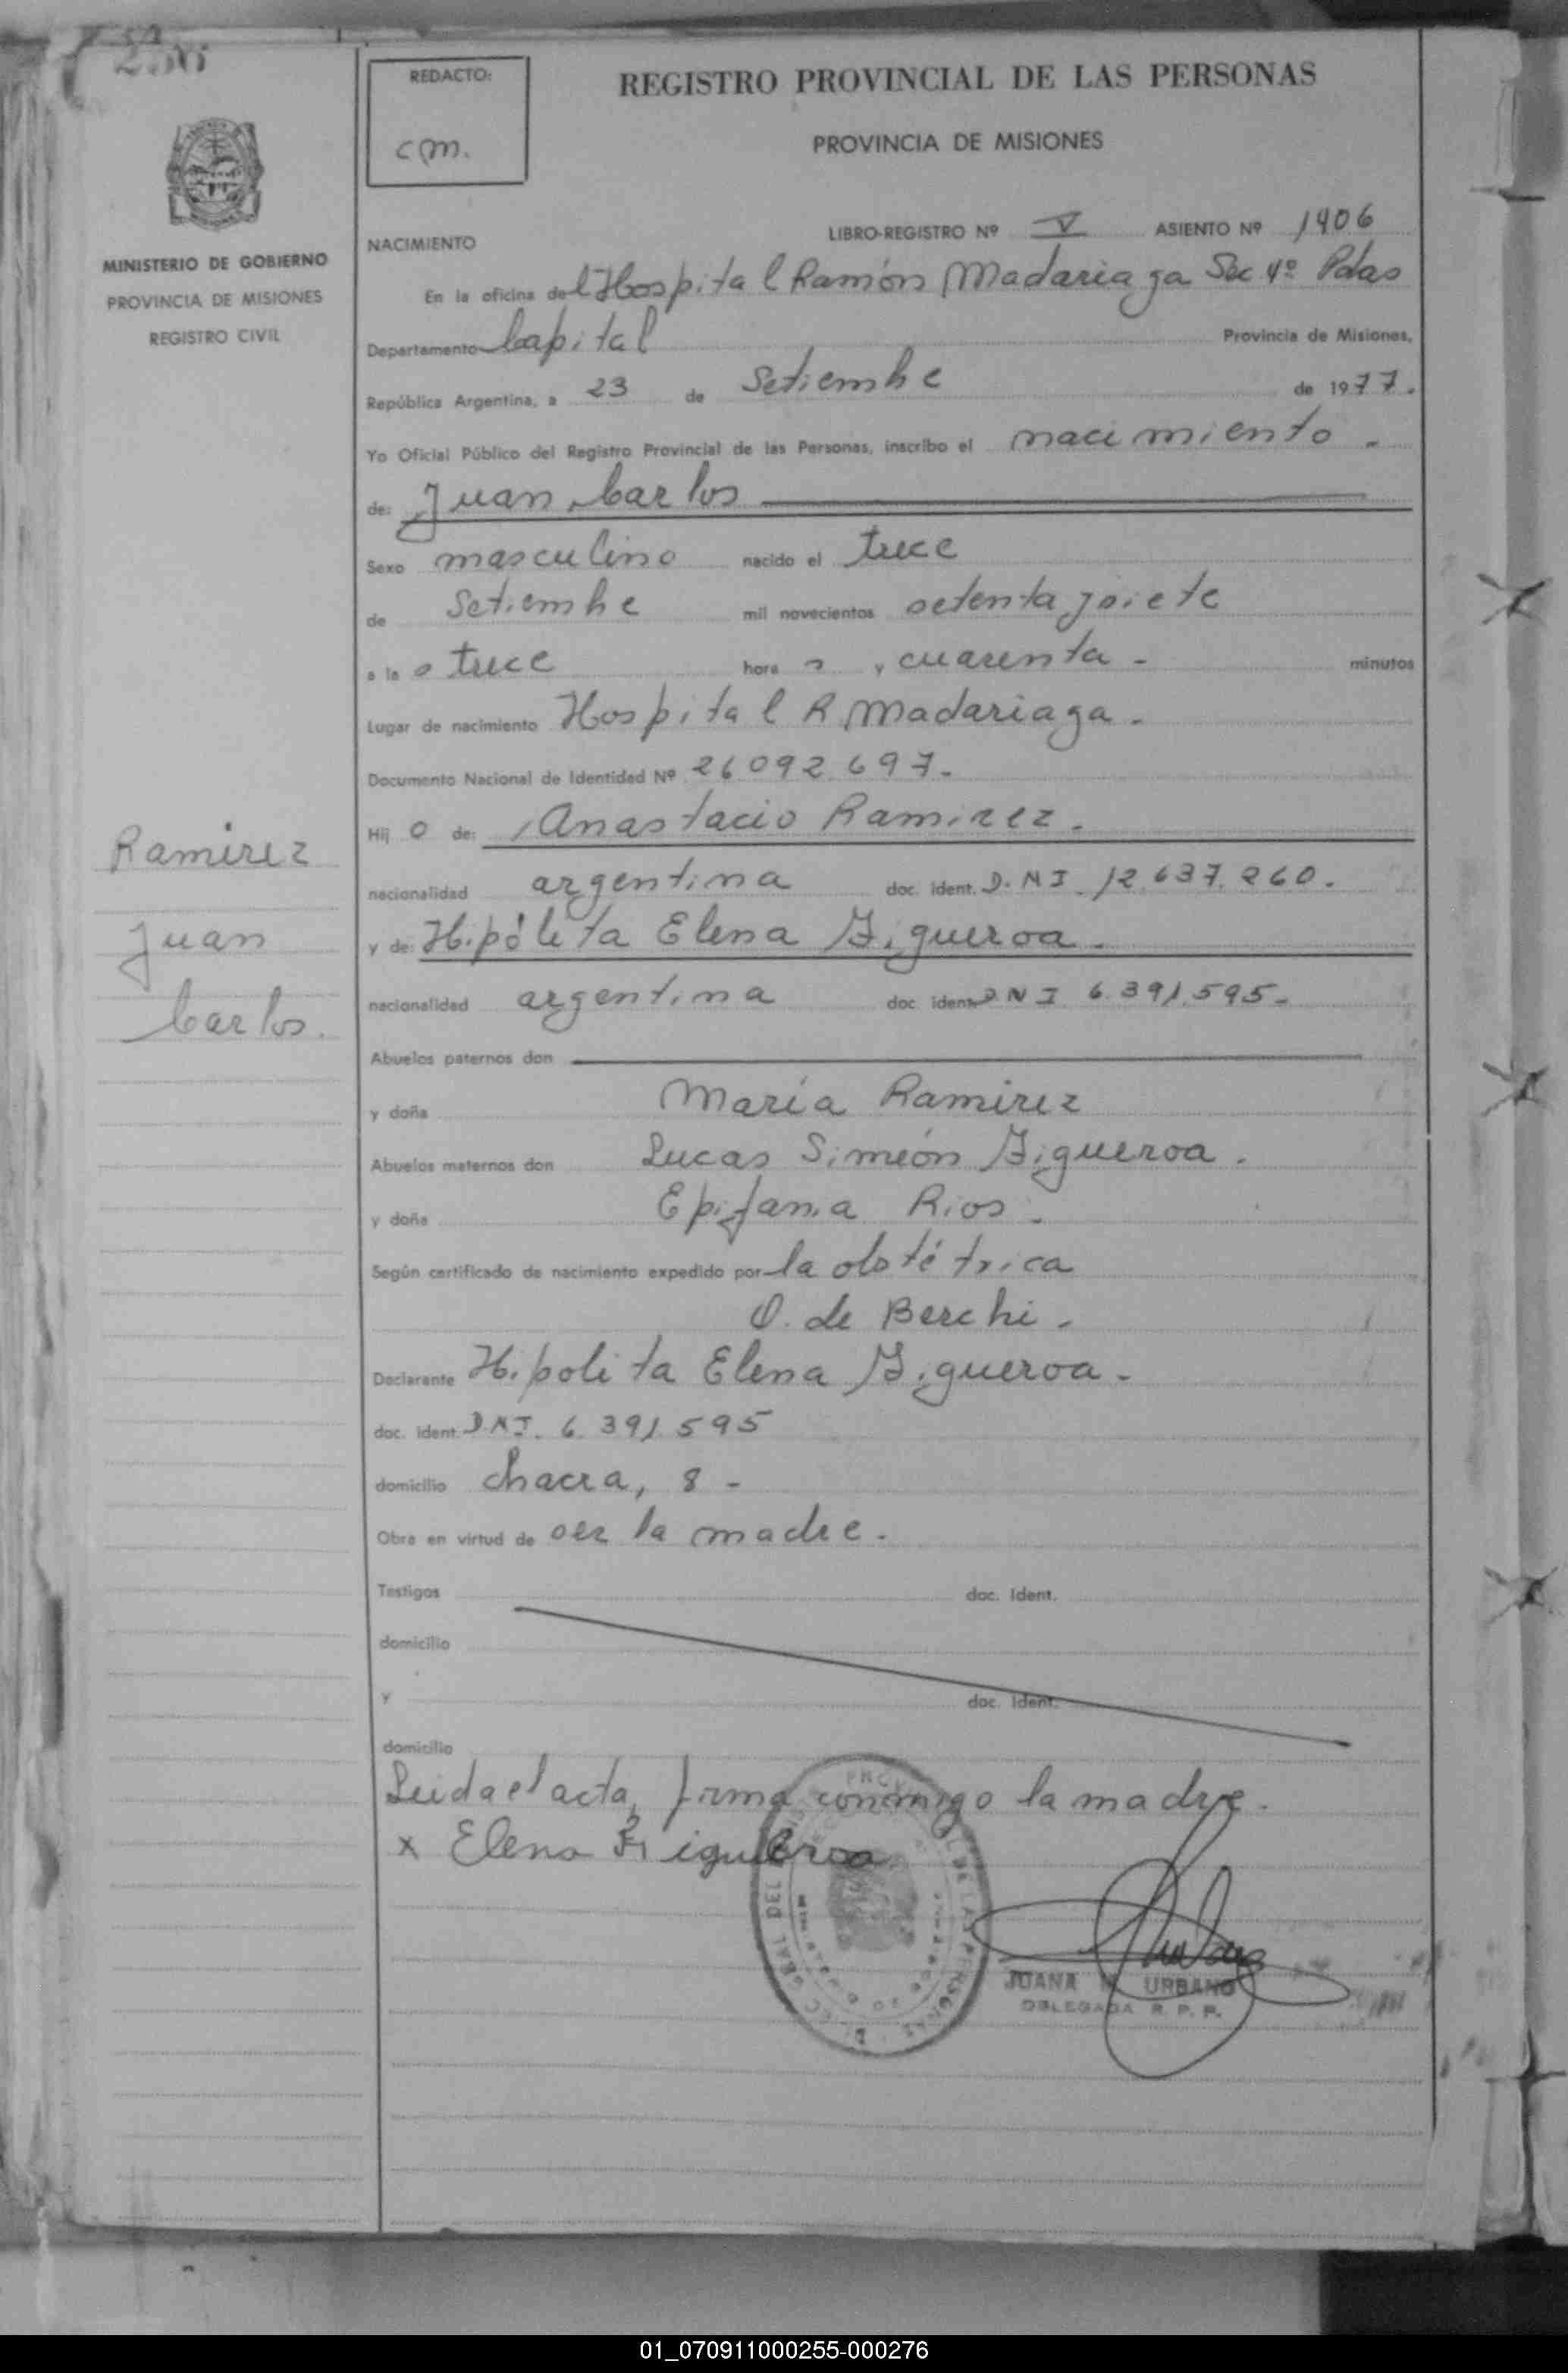 256
MINISTERIO DE GOBIERNO
PROVINCIA DE MISIONES
REGISTRO CIVIL
Ramirez
Juan
Carlos.
REDACTO:
cm.
REGISTRO PROVINCIAL DE LAS PERSONAS
PROVINCIA DE MISIONES
NACIMIENTO
LIBRO-REGISTRO Nº V ASIENTO Nº 1406
En la oficina del Hospital Ramón Madariaga Sec 4º Pdas
Departamento Capital Provincia de Misiones,
República Argentina, a 23 de Setiembre de 1977.
Yo Oficial Público del Registro Provincial de las Personas, inscribo el nacimiento.
de: Juan Carlos
Sexo masculino nacido el trece
de Setiembre mil novecientos setenta y siete
a la s trece hora s y cuarenta - minutos
Lugar de nacimiento Hospital R Madariaga.
Documento Nacional de Identidad Nº 26092697.
Hij o de: Anastacio Ramirez.
nacionalidad argentina doc. ident. D.N.I. 12.637.260.
y de: Hipólita Elena Figueroa.
nacionalidad argentina doc. ident. D N I 6.391.595-
Abuelos paternos don
y doña María Ramirez
Abuelos maternos don Lucas Simeón Figueroa.
y doña Epifania Rios.
Según certificado de nacimiento expedido por la obstétrica
O. de Berchi.
Declarante Hipolita Elena Figueroa.
doc. ident. D.N.I. 6.391.595
domicilio chacra, 8 -
Obra en virtud de ser la madre.
Testigos doc. ident.
domicilio
y doc. ident.
domicilio
Leida el acta, firma conmigo la madre.
x Elena Figueroa
JUANA URBANO
DELEGADA R. P. P.
01_070911000255-000276